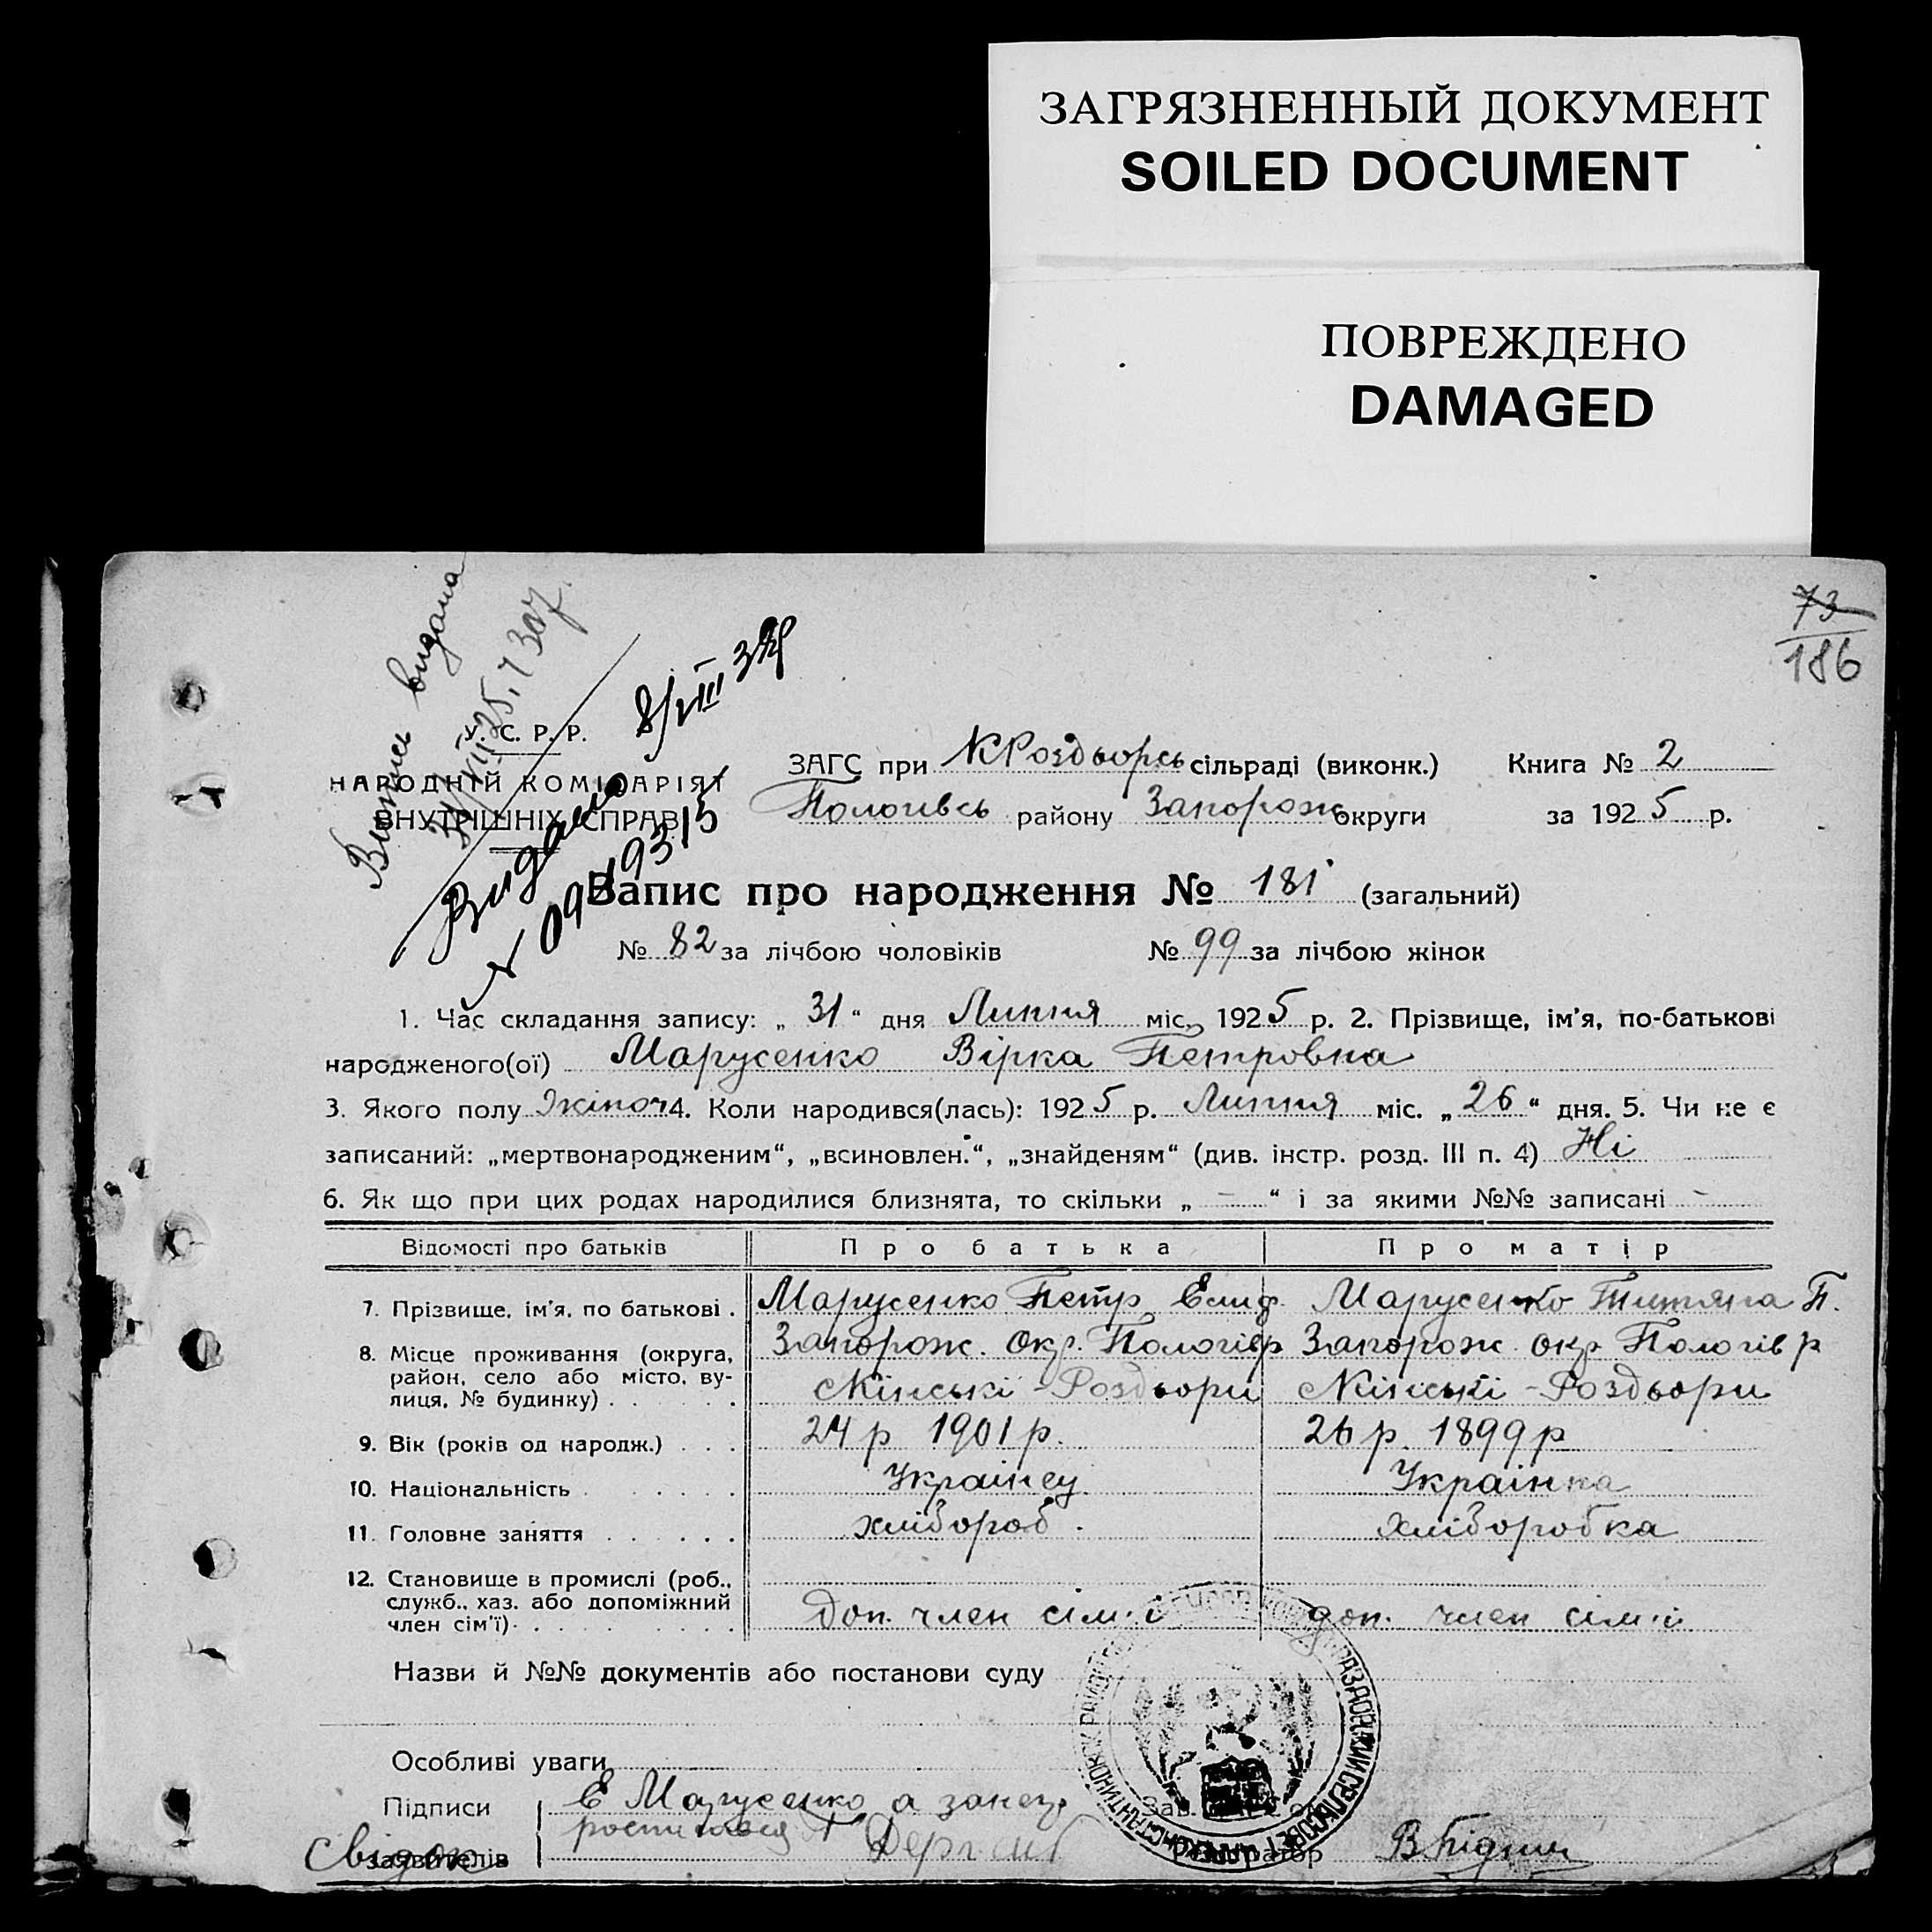 ЗАГРЯЗНЕННЫЙ ДОКУМЕНТ
SOILED DOCUMENT
ПОВРЕЖДЕНО
DAMAGED
73
186
Випись видана
Видано
8/VIII
У. С. Р. Р.
НАРОДНІЙ КОМІСАРІЯТ
ВНУТРІШНІХ СПРАВ
ЗАГС при КРоздворсь сільраді (виконк.) Книга № 2
Пологівсь району Запорож округи за 1925 р.
Запис про народження № 181 (загальний)
№ 82 за лічбою чоловіків № 99 за лічбою жінок
1. Час складання запису: „31“ дня Липня міс. 1925 р. 2. Прізвище, ім'я, по-батькові
народженого(ої) Марусенко Вірка Петровна
3. Якого полу Жіноч 4. Коли народився(лась): 1925 р. Липня міс. „26“ дня. 5. Чи не є
записаний: „мертвонародженим“, „всиновлен.“, „знайденям“ (див. інстр. розд. III п. 4) Ні
6. Як що при цих родах народилися близнята, то скільки „ — “ і за якими №№ записані —
Відомості про батьків Про батька Про матір
7. Прізвище, ім'я, по батькові . Марусенко Петр Марусенко Титяна П.
8. Місце проживання (округа, Запорож. окр. Пологів р Запорож окр Пологів р
район, село або місто, ву- Кінські - Роздвори Кінські - Роздвори
лиця, № будинку)
9. Вік (років од народж.) 24 р 1901 р. 26 р. 1899 р
10. Національність Українец Українка
11. Головне заняття хлібороб. хліборобка
12. Становище в промислі (роб.,
служб., хаз. або допоміжний доп. член сім'ї доп. член сім'ї
член сім'ї)
Назви й №№ документів або постанови суду
Особливі уваги
Підписи Е Марусенко а за
свідок
заявителів
Реєстратор